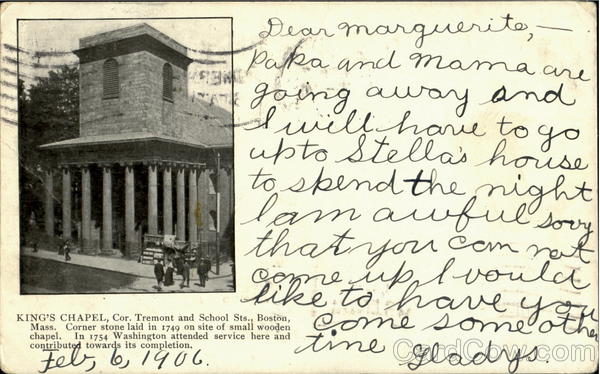 Dear Marguerite, —
Papa and Mama are
going away and
I will have to go
up to Stella's house
to spend the night
I am awful sorry
that you can not
come up I would
like to have you
come some other
time Gladys.
KING'S CHAPEL, Cor. Tremont and School Sts., Boston,
Mass. Corner stone laid in 1749 on site of small wooden
chapel. In 1754 Washington attended service here and
contributed towards its completion.
Feb, 6, 1906.
CardCow.com